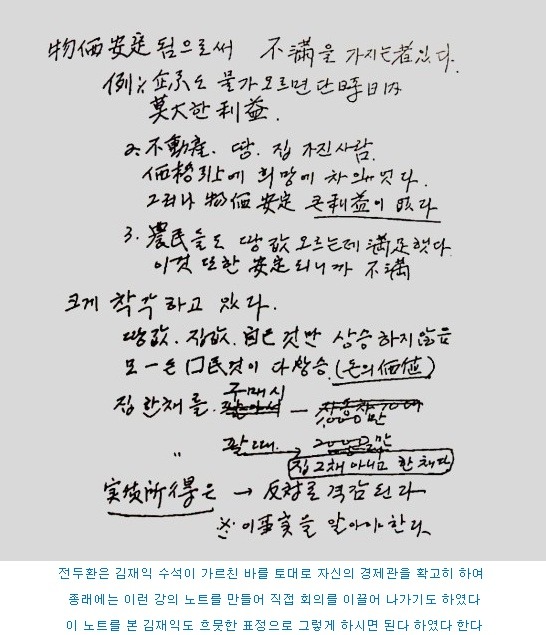 物価安定 됨으로써 不滿을 가지는 者 있다.
例) 企業도 물가오르면 단時日內
莫大한 利益.
2. 不動産. 땅. 집 가진사람.
価格引上에 희망에 차 있다.
그러나 物価安定 큰利益이 없다
3. 農民들도 땅값 오르는데 滿足했다
이것 또한 安定되니까 不滿
크게 착각하고 있다.
땅값. 집값. 自己것만 상승하지않음
모든 國民것이 다상승. (돈의価値)
집 한채를. 구매시
팔때.
집2채 아니고 한채다
実質所得은 → 反対로 격감된다
※ 이事実을 알아야한다.
전두환은 김재익 수석이 가르친 바를 토대로 자신의 경제관을 확고히 하여
종래에는 이런 강의 노트를 만들어 직접 회의를 이끌어 나가기도 하였다
이 노트를 본 김재익도 흐뭇한 표정으로 그렇게 하시면 된다 하였다 한다